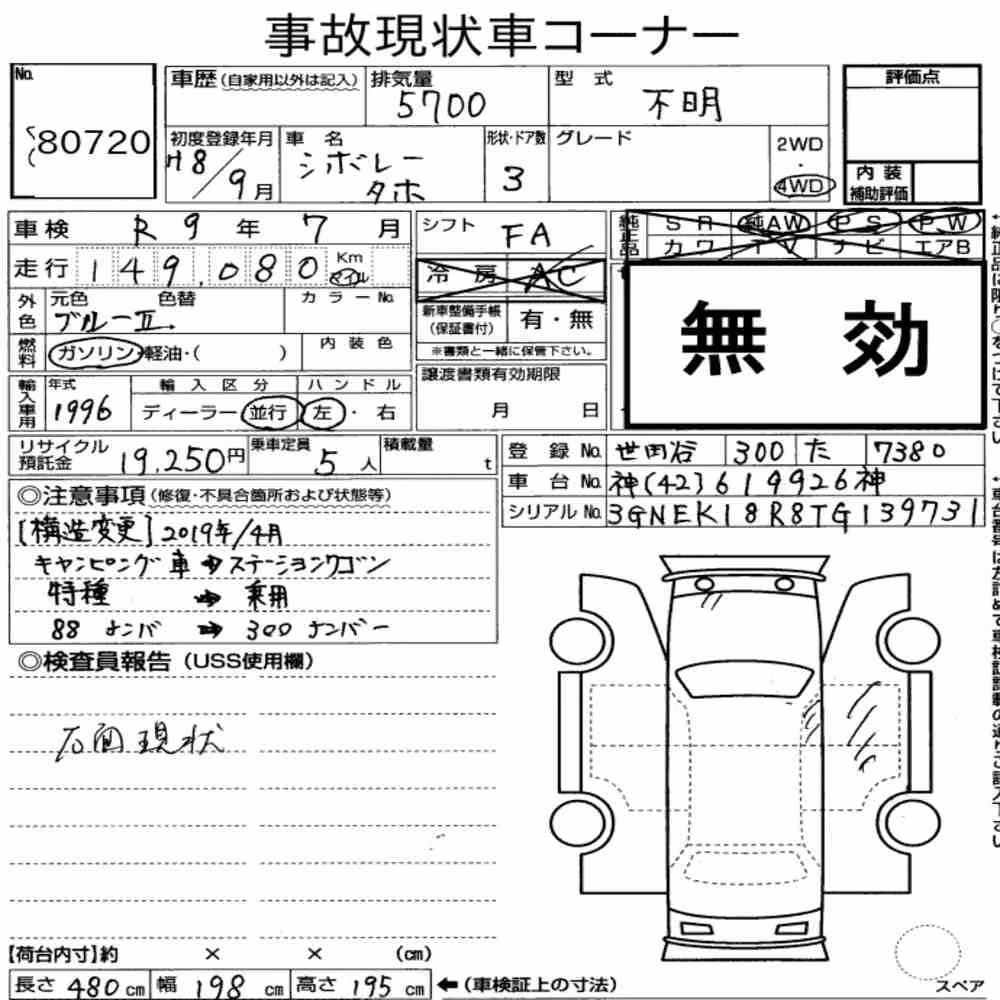 事故現状車コーナー
No.
80720
車歴 (自家用以外は記入)
排気量
5700
型式
不明
評価点
内装
補助評価
初度登録年月
H8/9月
車名
シボレー
タホ
形状・ドア数
3
グレード
2WD
・
4WD
車検 R9年7月
走行 149,080 Km マイル
シフト
FA
純正品
SR 純AW PS PW
カワ TV ナビ エアB
冷房 AC
新車整備手帳
(保証書付)
有・無
※書類と一緒に保管下さい。
無効
外色
元色 色替
ブルーII.
カラーNo.
燃料
ガソリン・軽油・( )
内装色
輸入車用
年式
1996
輸入区分
ディーラー・並行
ハンドル
左・右
譲渡書類有効期限
月 日
リサイクル
預託金
19,250円
乗車定員
5人
積載量
t
登録No. 世田谷 300 た 7380
車台No. 神(42)619926神
シリアルNo. 3GNEK18R8TG139731
◎注意事項 (修復・不具合箇所および状態等)
[構造変更] 2019年/4月
キャンピング車→ステーションワゴン
特種 → 乗用
88ナンバ → 300ナンバー
◎検査員報告 (USS使用欄)
右面現状
【荷台内寸】約 × × (cm)
長さ 480 cm 幅 198 cm 高さ 195 cm ←(車検証上の寸法)
スペア